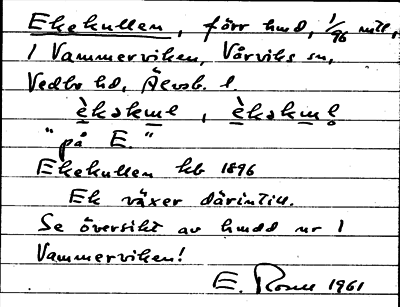 Ekekullen, förr hmd, 1/96 mtl,
1 Vammerviken, Vårviks sn,
Vedbo hd, Älvsb. l.
"på E."
Ekekullen kb 1896
Ek växer därintill.
Se översikt av hmdd nr 1
Vammerviken!
E. 1961